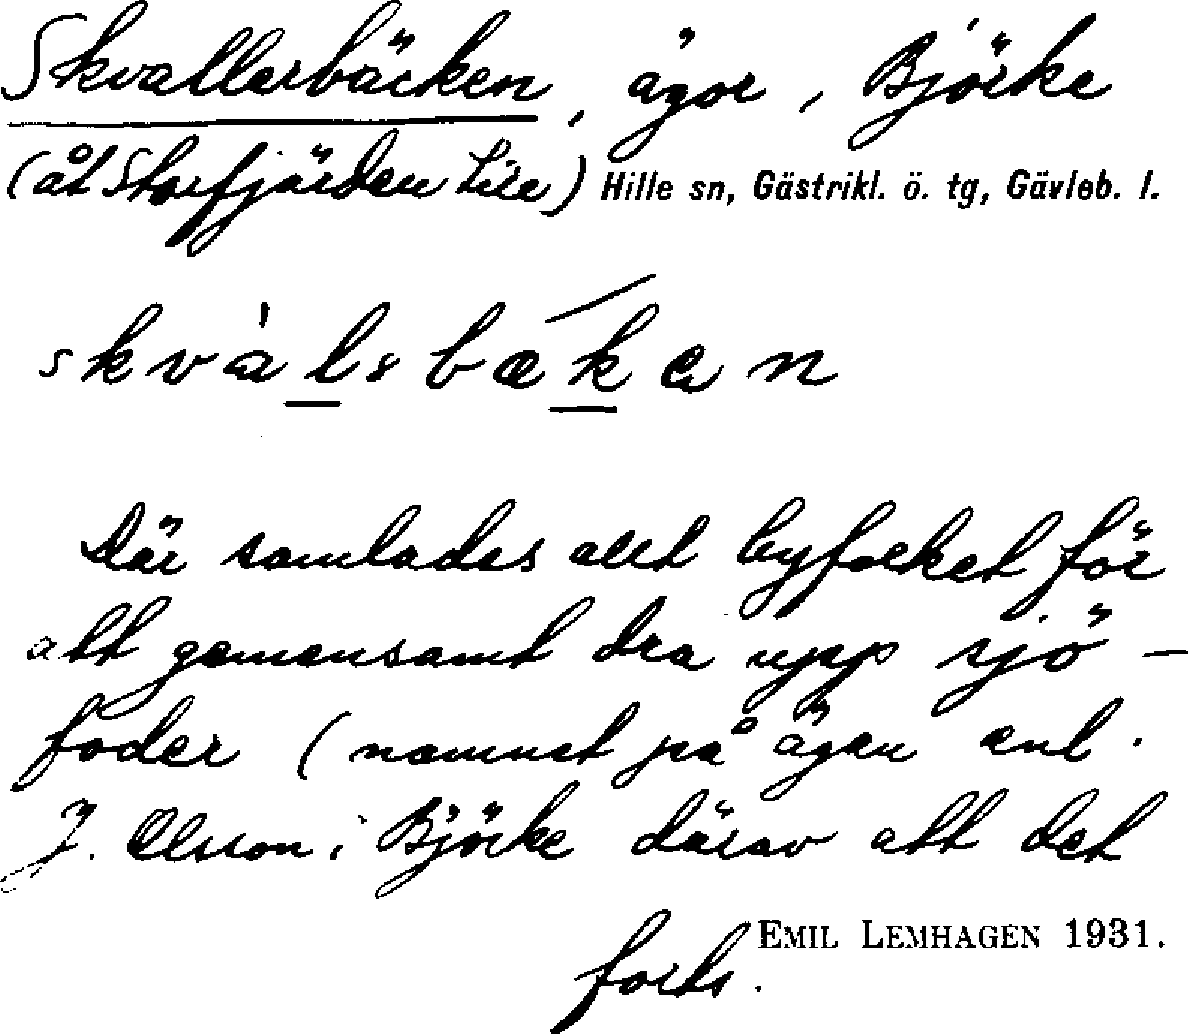 Skvallerbäcken, ägor, Björke
(åt Storfjärden till) Hille sn, Gästrikl. ö. tg, Gävleb. l.
skvàlsbækan
Där samlades allt byfolket för
att gemensamt dra upp sjö-
foder (namnet på ägan enl.
J. Olsson i Björke därav att det
forts. EMIL LEMHAGEN 1931.